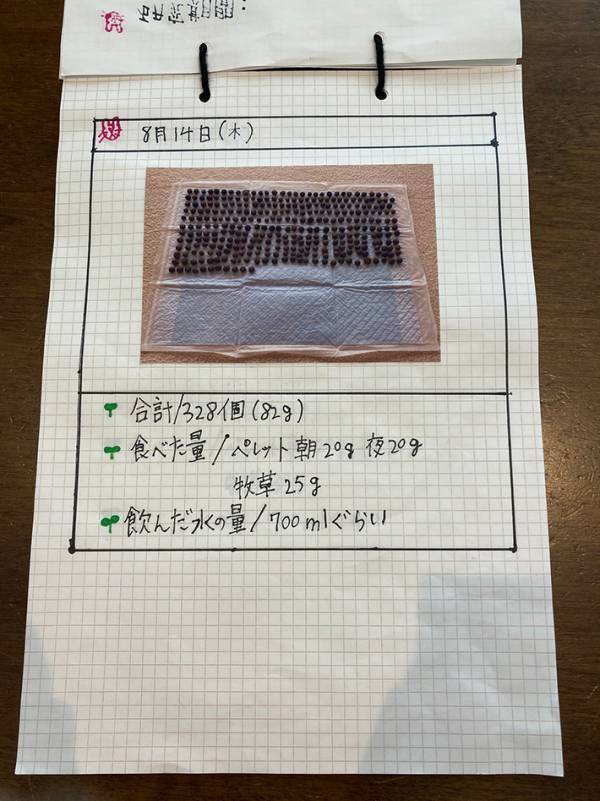 8月14日(木)
合計/328個(82g)
食べた量/ペレット 朝20g 夜20g
牧草25g
飲んだ水の量/700mlぐらい